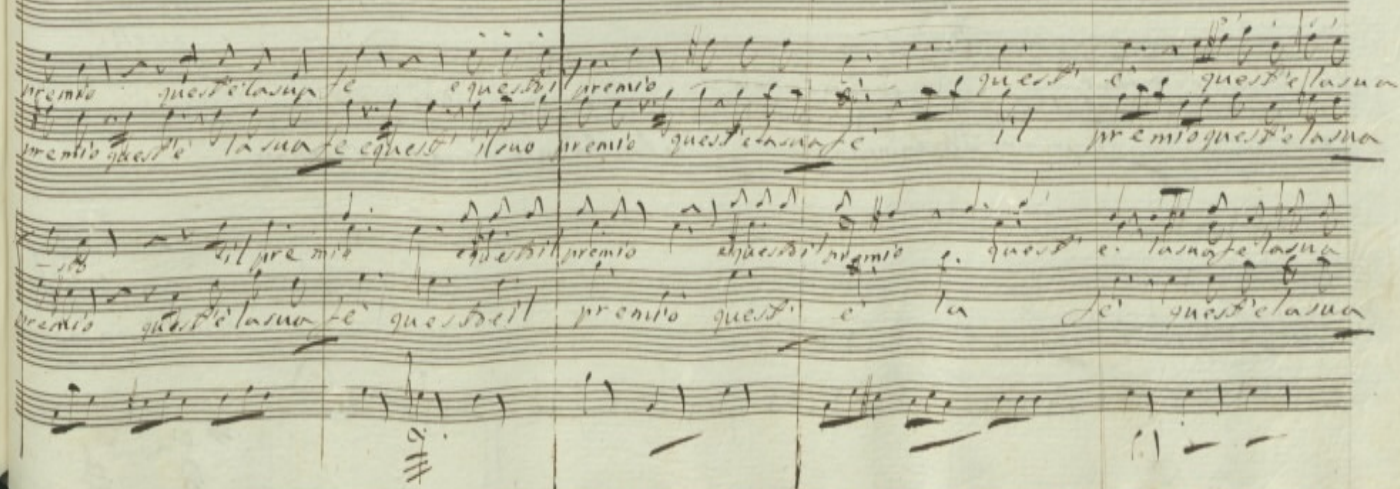 premio quest'è la sua fè e questo il premio quest' è quest'è la sua
premio quest'è la sua fè e quest' il suo premio quest'è la sua fè il premio quest'è la sua
il premio e questo il premio e questo il premio quest' è la sua fè la sua
premio quest'è la sua fè questo è il premio quest' è la fè quest'è la sua